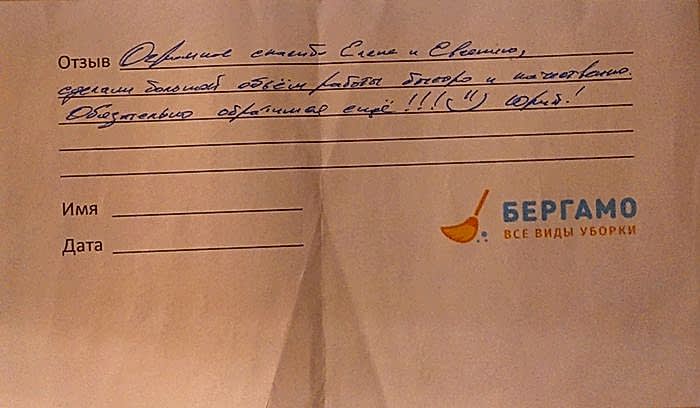 Отзыв Огромное спасибо Елене и Евгению,
сделали большой объём работы быстро и качественно.
Обязательно обратимся ещё!!! (") Юрий!
Имя
Дата
БЕРГАМО
ВСЕ ВИДЫ УБОРКИ